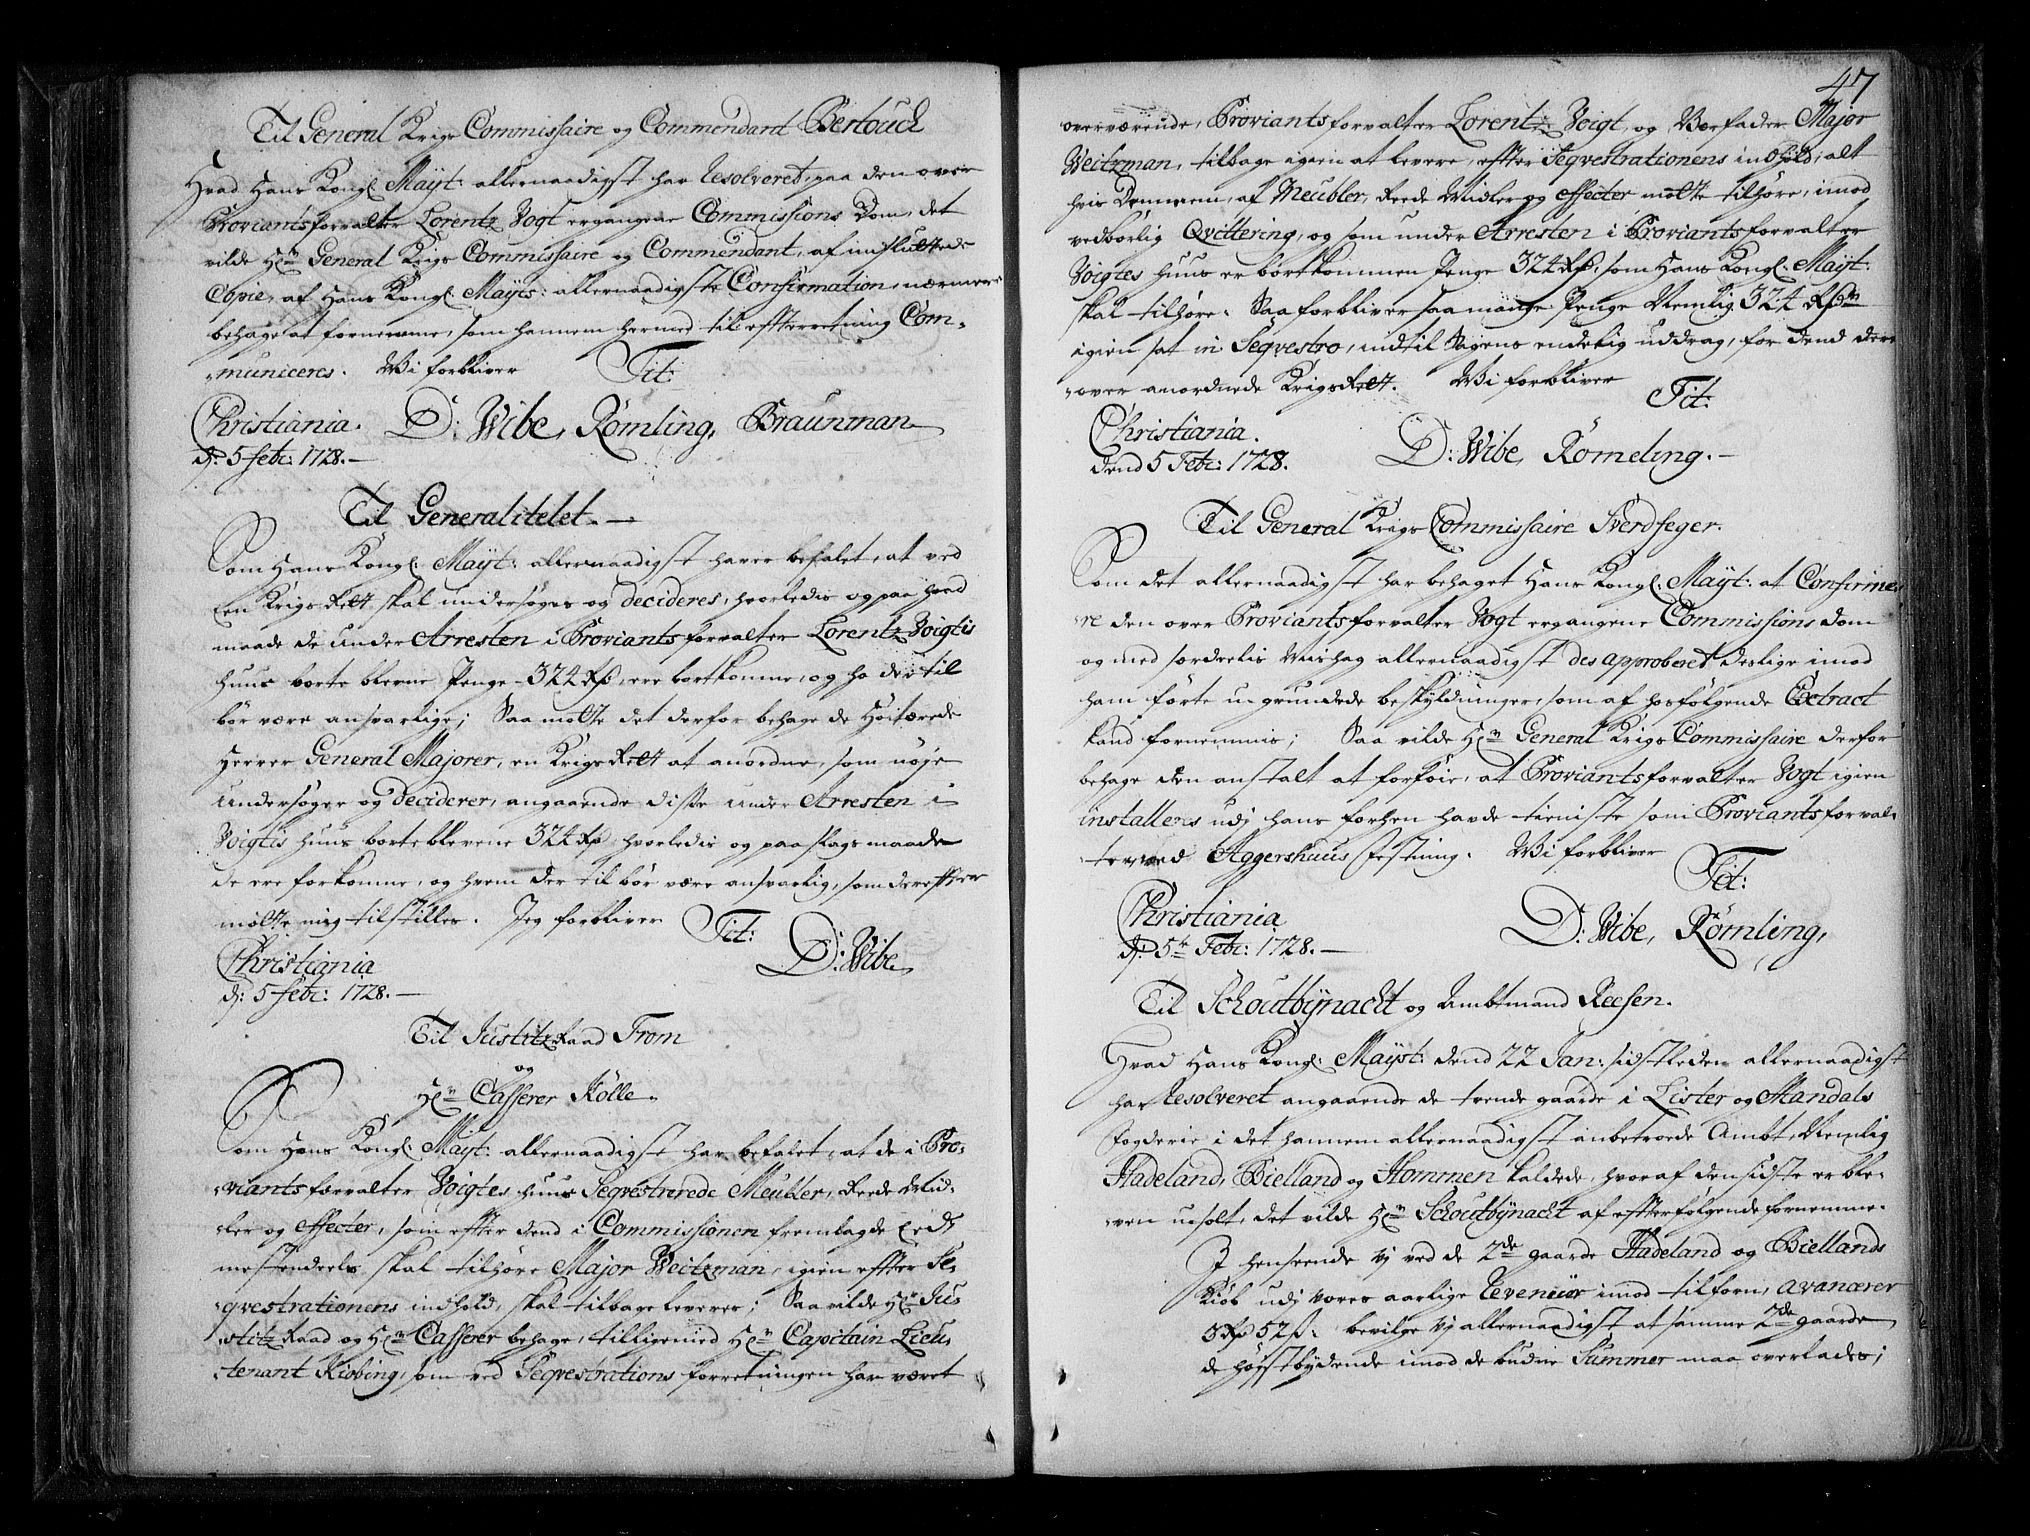 Til General Krigs Commissaire og Commendant Bertouch
Hvad Hans Kongl. Mayt: allernaadigst har Resolveret, paa den over
Proviantsforvalter Lorentz Vogt ergangene Commissions Dom, det
vilde Hr. General Krigs Commissaire og Commendant, af indsluttede
Copie, af Hans Kongl. Mayts: allernaadigste Confirmation, nærmere
behage at fornemme, som hannem hermed til efterretning Com-
municeres. Wi forbliver Tit:
Christiania. D: Wibe, Rømling, Braunman
d: 5 Febr: 1728.
Til Generalitetet.
Som Hans Kongl. Mayt: allernaadigst haver befalet, at ved
een Krigs Rett skal undersøges og decideres, hvorledis og paa hvad
maade de under Arresten i Proviantsforvalter Lorentz Voigtis
huus borte blevne Penge 324 Rd, ere bortkomne, og hvo der til
bør være ansvarlige; Saa motte det derfor behage de Høitærede
Herrer General Majorer, en Krigs Rett at anordne, som nøje
undersøger og deciderer, angaaende disse under Arresten i
Voigtis huus borteblevene 324 Rd hvorledis og paa slags maade
de ere forkomne, og hvem der til bør være ansvarlig, som derefter
motte mig tilstilles. Jeg forbliver Tit:
Christiania D: Wibe
d: 5 Febr: 1728.
Til Justitz Raad From
og
Hr. Casserer Kølle.
Som Hans Kongl. Mayt: allernaadigst har befalet, at de i Pro-
viantsforvalter Voigtes huus Seqvestrerede Meubler, Reede Mid-
ler og effecter, som efter dend i Commissionen fremlagde Eed
mestendeels skal tilhøre Major Weitzman, igien efter Se-
qvestrationens indhold, skal tilbage leveres; Saa vilde Hr. Jus-
titz Raad og Hr. Casserer behage, tilligemed Hr. Capitain Lieu-
tenant Kiøbing, som ved Seqvestrations forretningen har været
47
overværende, Proviantsforvalter Lorentz Voigt, og Værfader Major
Weitzman, tilbage igien at levere, efter Seqvestrationens indhold, alt
hvis dennem, af Meubler, Reede Midler og effecter motte tilhøre, imod
vedbørlig Qvittering, og som under Arresten i Proviantsforvalter
Voigtes huus er bortkommen Penge 324 Rd, som Hans Kongl. Mayt:
skal tilhøre. Saa forbliver saa mange Penge Nemlig 324 Rdr
igien sat in Seqvestro, indtil Sagens endelig uddrag, for dend der-
over anordnede Krigs Rett. Wi forbliver Tit:
Christiania.
dend 5 Febr: 1728. D: Wibe, Rømeling.
Til General Krigs Commissaire Sverdfeger.
Som det allernaadigst har behaget Hans Kongl. Mayt: at Confirme-
re den over Proviantsforvalter Vogt ergangene Commissions Dom
og med særdeelis Mishag allernaadigst desapproberet deslige imod
ham førte ugrundede beskyldninger, som af hosfølgende Extract
kand fornemmis; Saa vilde Hr. General Krigs Commissaire derfor
behage den anstalt at forføie, at Proviantsforvalter Vogt igien
installeres udj hans forhen havde tieniste som Proviantsforval-
ter ved Aggershuus Festning. Wi forbliver Tit:
Christiania
d: 5te Febr: 1728. D: Wibe, Rømling,
Til Schoutbynacht og Ambtmand Reesen.
Hvad Hans Kongl. Mayst: dend 22 Jan: sidstleden allernaadigst
har Resolveret angaaende de trende gaarde i Lister og Mandals
Fogderie i det hannem allernaadigst anbetroede Ambt, Nemlig
Hadeland, Bielland og Hommen kaldede, hvoraf den sidste er ble-
ven usolt, det vilde Hr. Schoutbynacht af efterfølgende fornemme.
I henseende vj ved de 2de gaarde Hadeland og Biellands
Kiøb udj vores aarlige Revenüer imod tilforn, avancerer
3 Rd 52 s. bevilge vj allernaadigst at samme 2de gaarde
de højstbydende imod de budne Summer maa overlades;